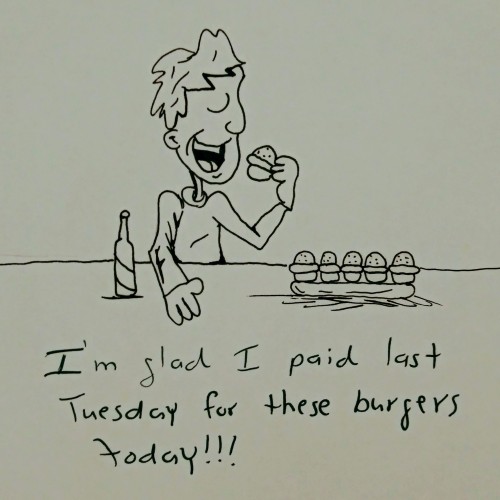 I'm glad I paid last
Tuesday for these burgers
today!!!